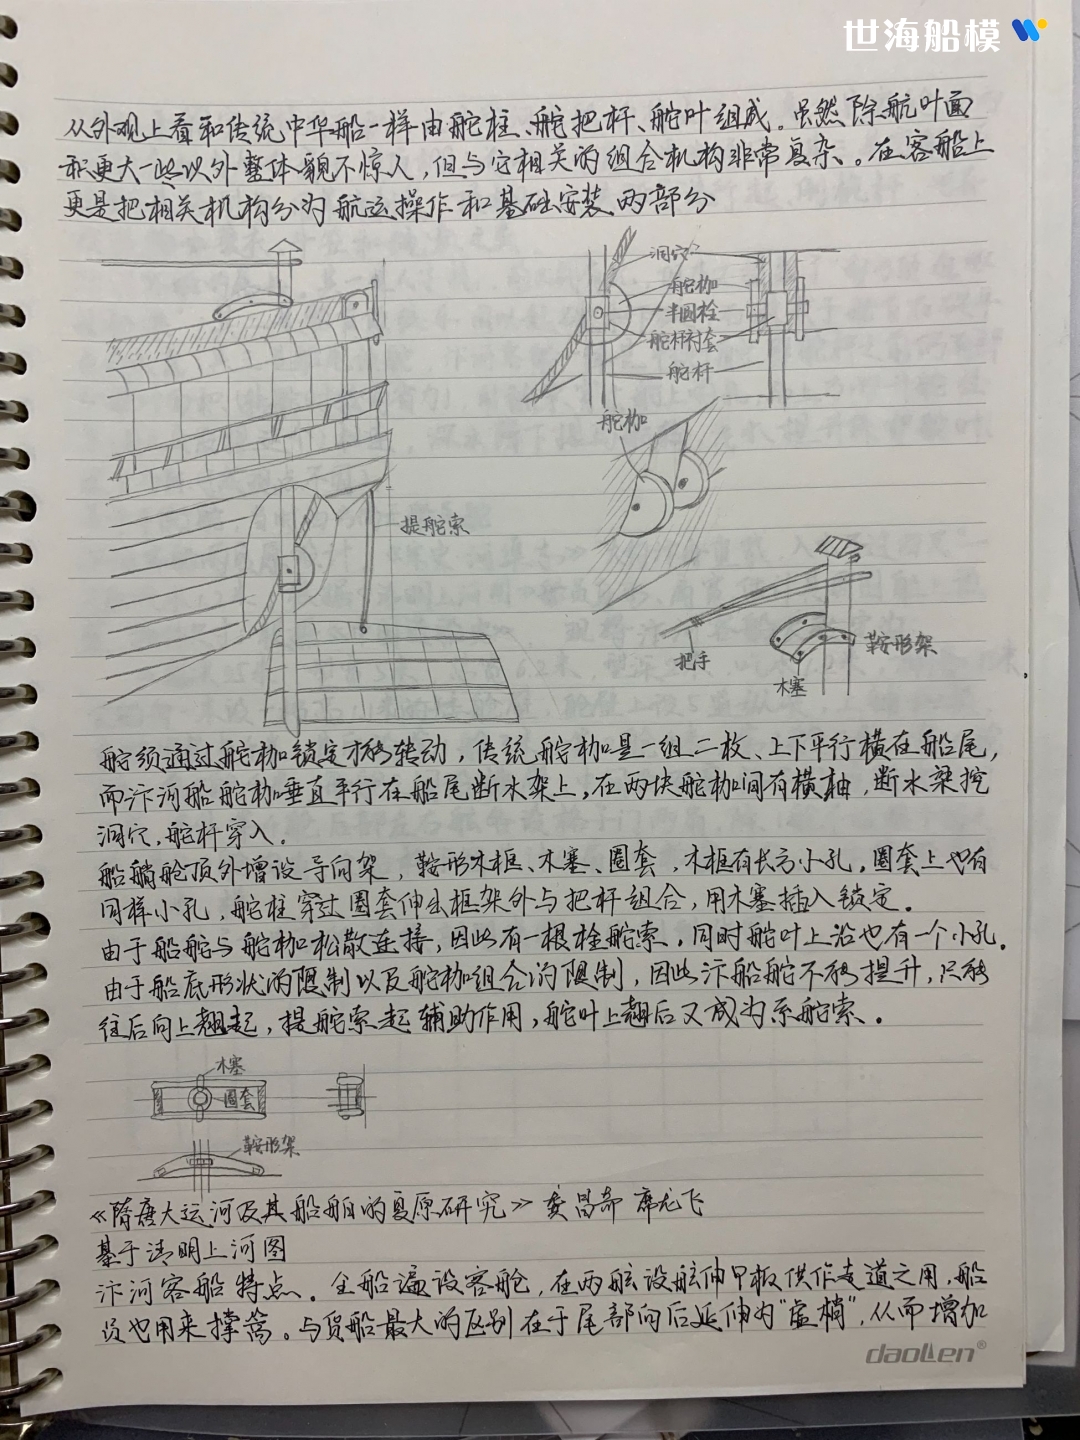 世海船模
从外观上看和传统中华船一样由舵柱、舵把杆、舵叶组成。虽然除航叶面
积更大一些以外整体貌不惊人,但与它相关的组合机构非常复杂。在客船上
更是把相关机构分为航运操作和基础安装两部分
洞穴
舵枷
半圆栓
舵杆衬套
舵杆
舵枷
提舵索
把手
鞍形架
木塞
舵须通过舵枷锁定才能转动,传统舵枷是一组二枚、上下平行横在船尾,
而汴河船舵枷垂直平行在船尾断水架上,在两块舵枷间有横轴,断水梁挖
洞穴,舵杆穿入.
船艄舱顶外增设导向架,鞍形木框、木塞、圈套,木框有长方小孔,圈套上也有
同样小孔,舵柱穿过圈套伸出框架外与把杆组合,用木塞插入锁定.
由于船舵与舵枷松散连接,因此有一根栓舵索,同时舵叶上沿也有一个小孔.
由于船底形状的限制以及舵枷组合的限制,因此汴船舵不能提升,只能
往后向上翘起,提舵索起辅助作用,舵叶上翘后又成为系舵索。
木塞
圈套
鞍形架
《隋唐大运河及其船舶的复原研究》 昌奇 席龙飞
基于清明上河图
汴河客船特点。全船遍设客舱,在两舷设舷伸甲板供作走道之用,船
员也用来撑篙。与货船最大的区别在于尾部向后延伸为"虚梢",从而增加
daolen®